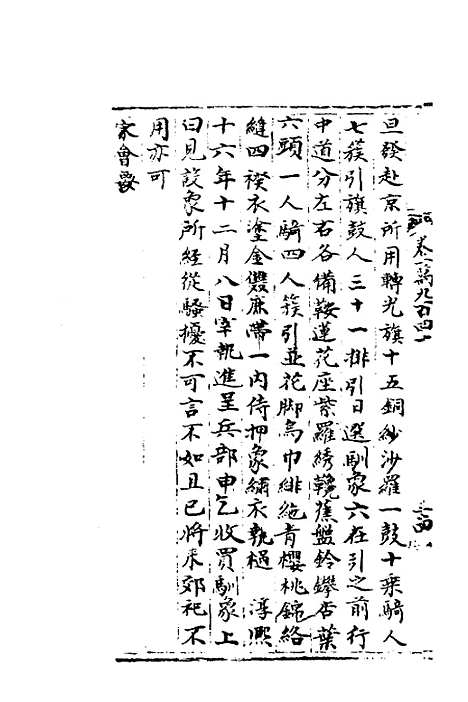 旦發赴京所用轉光旗十五銅紗沙羅一鼓十乘騎人
七簇引旗鼓人三十一排引日選馴象六在引之前行
中道分左右各備鞍蓮花座紫羅綉韉蕉盤鈴鑻杏葉
六頭一人騎四人簇引並花脚烏巾緋絁青櫻桃錦絡
縫四䙆衣塗金雙鹿帶一內侍押象繡衣執檛 淳熙
十六年十二月八日宰執進呈兵部申乞收買馴象上
曰見說象所經從騷擾不可言不如且已將來郊祀不
用亦可
宋會要
卷一萬九百四十